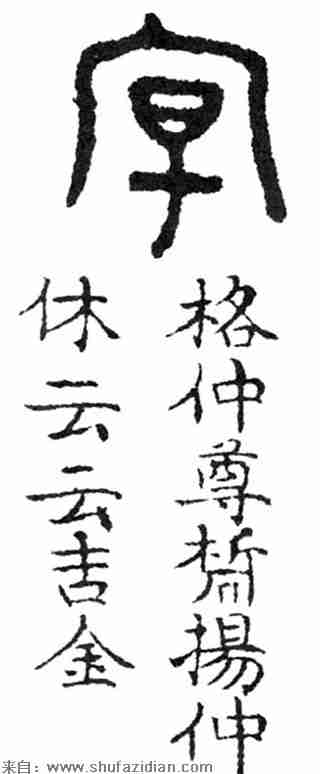 格仲尊揚仲
休云云吉金
来自：www.shufazidian.com